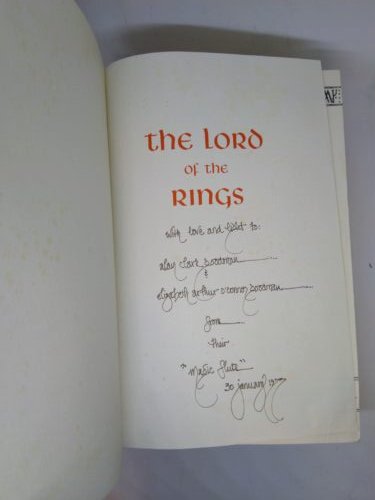 the LORD
of the
RINGS
With love and light to:
Alan Clark Boodman
&
Elizabeth Arthur O'Connor Boodman
from
their
"Magic Flute"
30 January 1977